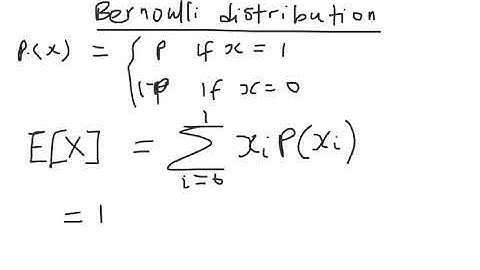 Bernoulli distribution
P(x) = { p if x = 1
1-p if x = 0
E[X] = ∑_{i=0}^{1} x_i P(x_i)
= 1